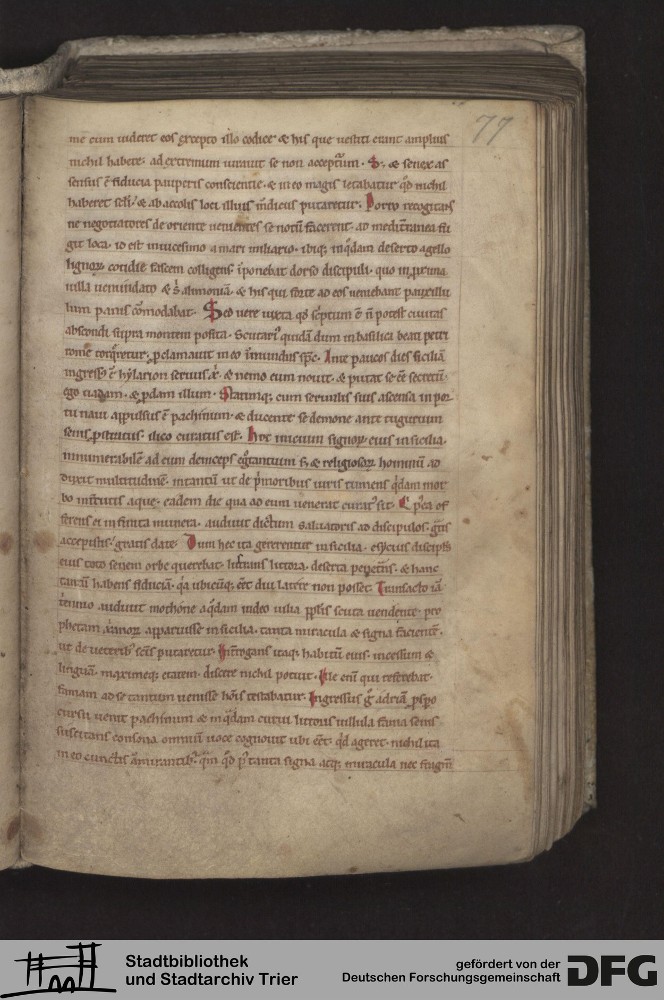 77
me cum uideret eos excepto illo codice & his que uestiti erant amplius
nichil habere. ad extremum iurauit se non accepturum. S; & senex as
sensus e fiducia paupertis conscientie. & in eo magis letabatur qd nichil
haberet seli. & ab accolis loci illius mdicus putaretur. Porro recogitans
ne negotiatores de oriente uenientes se notu facerent. ad mediterranea fu
git loca. id est in uicesimo a mari miliario. ibiq; in qdam deserto agello
lignoru cotidie fascem colligens. iponebat dorso discipuli. quo in pxima
uilla uenundato & & his qui forte ad eos ueniebant pauxillu
lum panis comodabat. Sed uere iuxta qd scriptum e n potest ciuitas
abscondi supra montem posita. Scutari quida dum in basilica beati petri
rome torqretur. pclamauit in eo inmundus spc. Ante paucos dies sicilia
ingress e hylarion seruus xp. & nemo eum nouit. & putat se ee secretu.
ego uadam. & pdam illum. Statimq; cum seruulis suis ascensa in por
tu naui appulsus e pachinum. & ducente se demone ante tugurium
senis pstratus. ilico curatus est. Hoc inicium signoru eius in sicilia.
innumerabile ad eum deinceps egrotantium s; & religiosoru hominu ad
duxit multitudine. intantu ut de pmoribus uiris tumens qdam mor
bo intercutis aque. eadem die qua ad eum uenerat curat sit. 
ferens ei infinita munera. audiuit dictum saluatoris ad discipulos. gtis
accepistis. gratis date. Dum hec ita gererentur in sicilia. esycius discipls
eius toto senem orbe querebat. lustrans littora. deserta penetrans. & hanc
tantu habens fiducia. qa ubicuq; eet diu latere non posset. Transacto ia
tennio audiuit mothone a qdam iudeo uilia pplis scuta uendente. pro
phetam xpianoru apparuisse in sicilia. tanta miracula & signa facientem.
ut de ueterib scis putaretur. Interrogans itaq; habitu eius. incessum &
lingua. maximeq; etatem. discere nichil potuit. Ille eni qui referebat.
famam ad se tantum uenisse hois testabatur. Ingressus g adria pspo
cursu uenit pachinum & in qdam curui littoris uillula fama senis
suscitans consona omniu uoce cognouit ubi eet. qd ageret. nichil ita
in eo cunctis amirantib. qm qd p tanta signa acq; miracula nec fragm
Stadtbibliothek
und Stadtarchiv Trier
gefördert von der
Deutschen Forschungsgemeinschaft
DFG